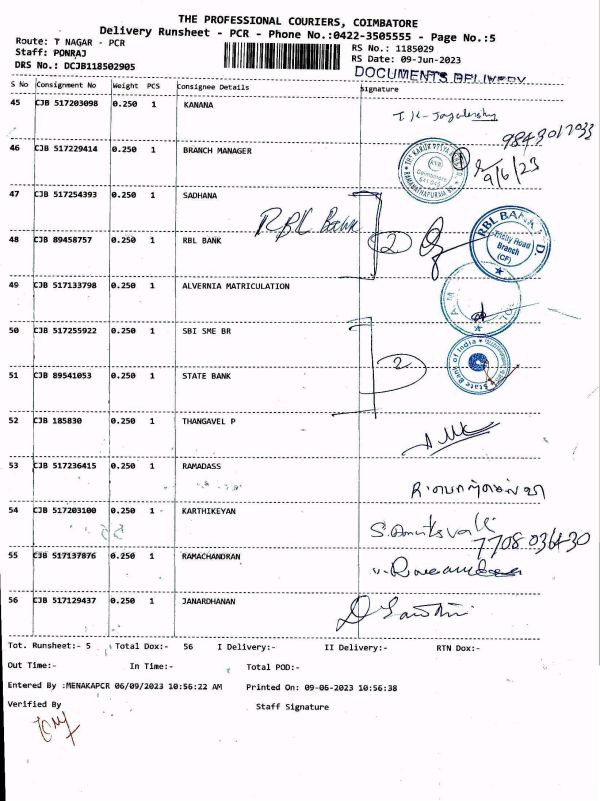 THE PROFESSIONAL COURIERS, COIMBATORE
Delivery Runsheet - PCR - Phone No.:0422-3505555 - Page No.:5
Route: T NAGAR - PCR
Staff: PONRAJ
DRS No.: DCJB118502905
RS No.: 1185029
RS Date: 09-Jun-2023
DOCUMENTS DELIVERY
S No Consignment No Weight PCS Consignee Details Signature
45 CJB 517203098 0.250 1 KANANA
46 CJB 517229414 0.250 1 BRANCH MANAGER
9/6/23
47 CJB 517254393 0.250 1 SADHANA
RBL Bank
2
RBL BANK
Branch
(CF)
48 CJB 89458757 0.250 1 RBL BANK
49 CJB 517133798 0.250 1 ALVERNIA MATRICULATION
50 CJB 517255922 0.250 1 SBI SME BR
2
State Bank of India
51 CJB 89541053 0.250 1 STATE BANK
52 CJB 185830 0.250 1 THANGAVEL P
53 CJB 517236415 0.250 1 RAMADASS
54 CJB 517203100 0.250 1 KARTHIKEYAN
7708036430
55 CJB 517137876 0.250 1 RAMACHANDRAN
56 CJB 517129437 0.250 1 JANARDHANAN
Tot. Runsheet:- 5 Total Dox:- 56 I Delivery:- II Delivery:- RTN Dox:-
Out Time:- In Time:- Total POD:-
Entered By :MENAKAPCR 06/09/2023 10:56:22 AM Printed On: 09-06-2023 10:56:38
Verified By Staff Signature